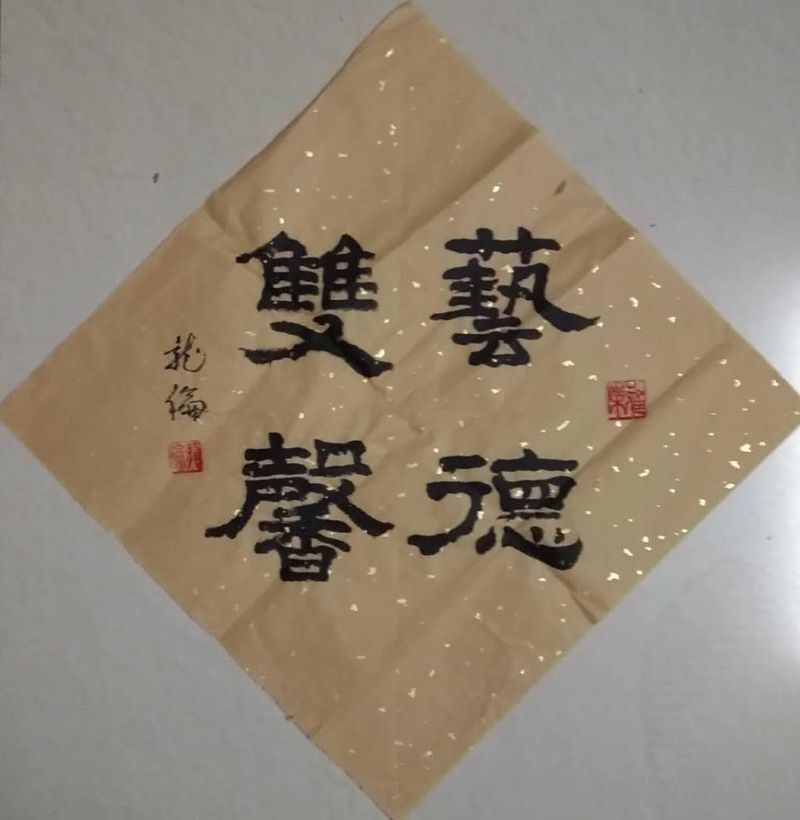 藝德
雙馨
龍倫